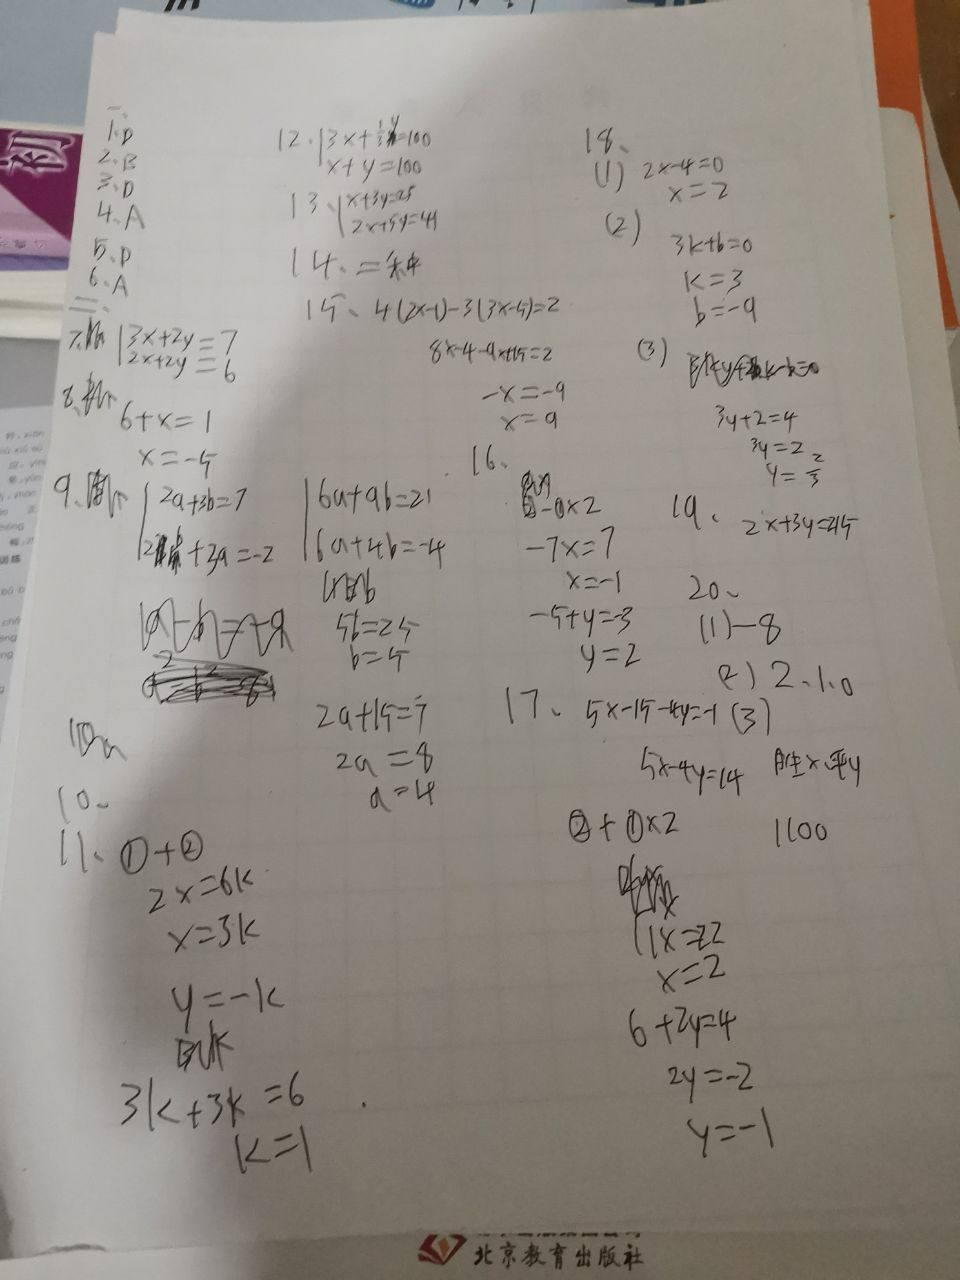 一、
1.D
2.B
3.D
4.A
5.D
6.A
二、
7.
3x+2y=7
2x+2y=6
8.
6+x=1
x=-5
9.
2a+3b=7
+3a=-2
6a+9b=21
6a+4b=-4
5b=25
b=5
2a+15=7
2a=8
a=4
10、
11、①+②
2x=6k
x=3k
y=-k
3k+3k=6
k=1
12.
3x+⅓y=100
x+y=100
13、
x+3y=25
2x+5y=41
14、二种
15、4(2x-1)-3(3x-5)=2
8x-4-9x+15=2
-x=-9
x=9
16、
②-①×2
-7x=7
x=-1
-5+y=-3
y=2
17、5x-15-4y=-1
5x-4y=14
②+①×2
11x=22
x=2
6+2y=4
2y=-2
y=-1
18、
(1) 2x-4=0
x=2
(2)
3k+b=0
k=3
b=-9
(3)
3y+2=4
3y=2
y=⅔
19、
20、
(1)-8
(2)2、1、0
(3)
1100
北京教育出版社